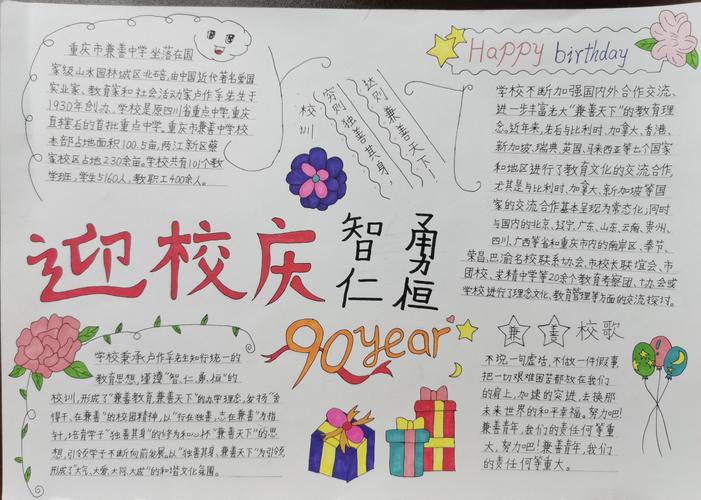 重庆市兼善中学坐落在国
家级山水园林城区北碚,由中国近代著名爱国
实业家、教育家和社会活动家卢作孚先生于
1930年创办。学校是原四川省重点中学,重庆
直辖后的首批重点中学。重庆市兼善中学校
本部占地面积100.5亩,两江新区蔡
家校区占地230余亩。学校共有101个教
学班,学生5160人,教职工400余人。
校训
穷则独善其身,
达则兼善天下
Happy birthday
学校不断加强国内外合作交流、
进一步丰富光大“兼善天下”的教育理
念。近年来,先后与比利时、加拿大、香港、
新加坡、瑞典、英国、马来西亚等七个国家
和地区进行了教育文化的交流合作,
尤其是与比利时、加拿大、新加坡等国
家的交流合作基本呈现为常态化;同时
与国内的北京、辽宁、广东、山东、云南、贵州、
四川、广西等省和重庆市内的南岸区、奉节、
荣昌、巴渝名校联系协会、市校长联谊会、市
团校、求精中学等20余个教育考察团、十办会或
学校进行了理念文化、教育管理等方面的交流探讨。
迎校庆
智仁
勇恒
90year
学校秉承卢作孚先生知行统一的
教育思想,谨遵“智、仁、勇、恒”的
校训,形成了“兼善教育,兼善天下”的办学理念,发扬“舍
得干、在兼善”的校园精神,以“行在独善,志在兼善”为指
针,培育学子“独善其身”的修为和心怀“兼善天下”的思
想,引领学子不断向前发展。以“独善其身、兼善天下”为引领
形成了“大气、大爱、大同、大成”的和谐文化氛围。
兼善校歌
不说一句虚话,不做一件假事
把一切艰难困苦都放在我们
的肩上,加速的突进,去换那
未来世界的和平幸福。努力吧!
兼善青年,我们的责任何等重
大,努力吧!兼善青年,我们
的责任何等重大。